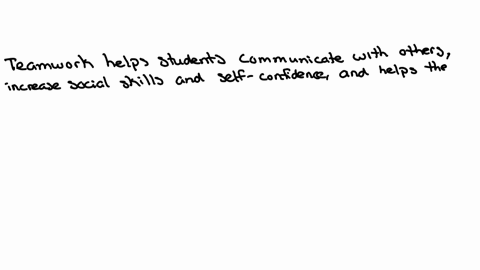 Teamwork helps students communicate with others,
increase social skills and self-confidence, and helps the